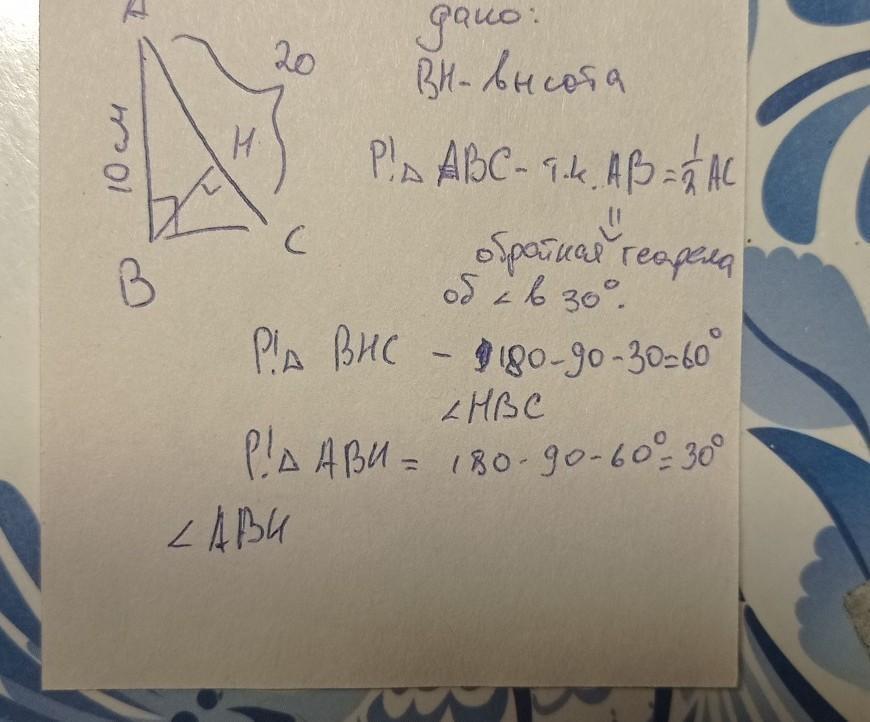 A
дано:
20
BH - высота
10 м
H
P!△ ABC - т.к. AB = 1/2 AC
C
B
обратная теорема
об ∠ в 30°.
P!△ BHC - 180-90-30=60°
∠HBC
P!△ ABH = 180-90-60°=30°
∠ABH